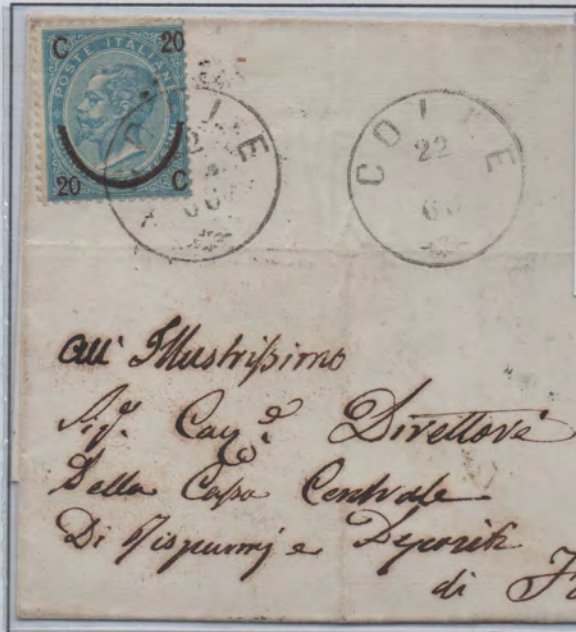 C 20
POSTE ITALIANE
20 C
COLLE
22
66
all' Illustrissimo
Sig.e Cav.e Direttore
Della Cassa Centrale
Di Risparmj e Depositi
di